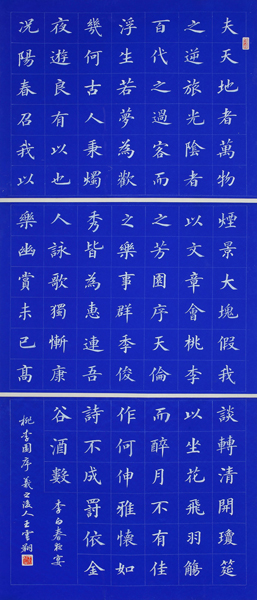 夫天地者萬物
之逆旅光陰者
百代之過客而
浮生若夢為歡
幾何古人秉燭
夜遊良有以也
況陽春召我以
煙景大塊假我
以文章會桃李
之芳園序天倫
之樂事群季俊
秀皆為惠連吾
人詠歌獨慚康
樂幽賞未已高
談轉清開瓊筵
以坐花飛羽觴
而醉月不有佳
作何伸雅懷如
詩不成罰依金
谷酒數 李白春夜宴
桃李園序 羲之後人王雲翔